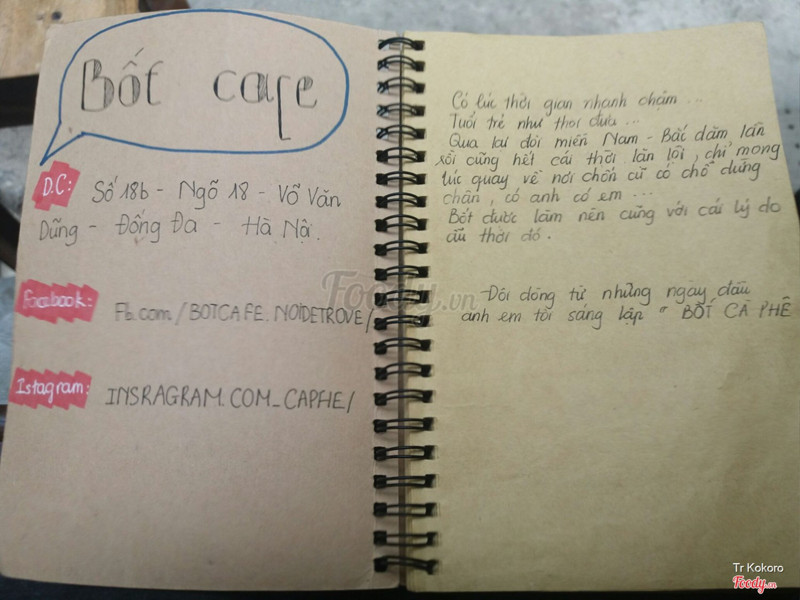 Bốt cafe
D.C: Số 18b - Ngõ 18 - Võ Văn
Dũng - Đống Đa - Hà Nội.
Facebook: Fb.com/BOTCAFE.NOIDETROVE/
Istagram: INSRAGRAM.COM_CAPHE/
Có lúc thời gian nhanh chậm ...
Tuổi trẻ như thoi đưa ...
Qua lư đời miền Nam - Bắc dăm lần
rồi cũng hết cái thời lăn lội, chỉ mong
lúc quay về nơi chốn cũ có chỗ dừng
chân, có anh có em ...
Bốt được làm nên cũng với cái lý do
ấu thời đó.
Đôi dòng từ những ngày đầu
anh em tôi sáng lập " BỐT CÀ PHÊ
Foody.vn
Tr Kokoro
Foody.vn